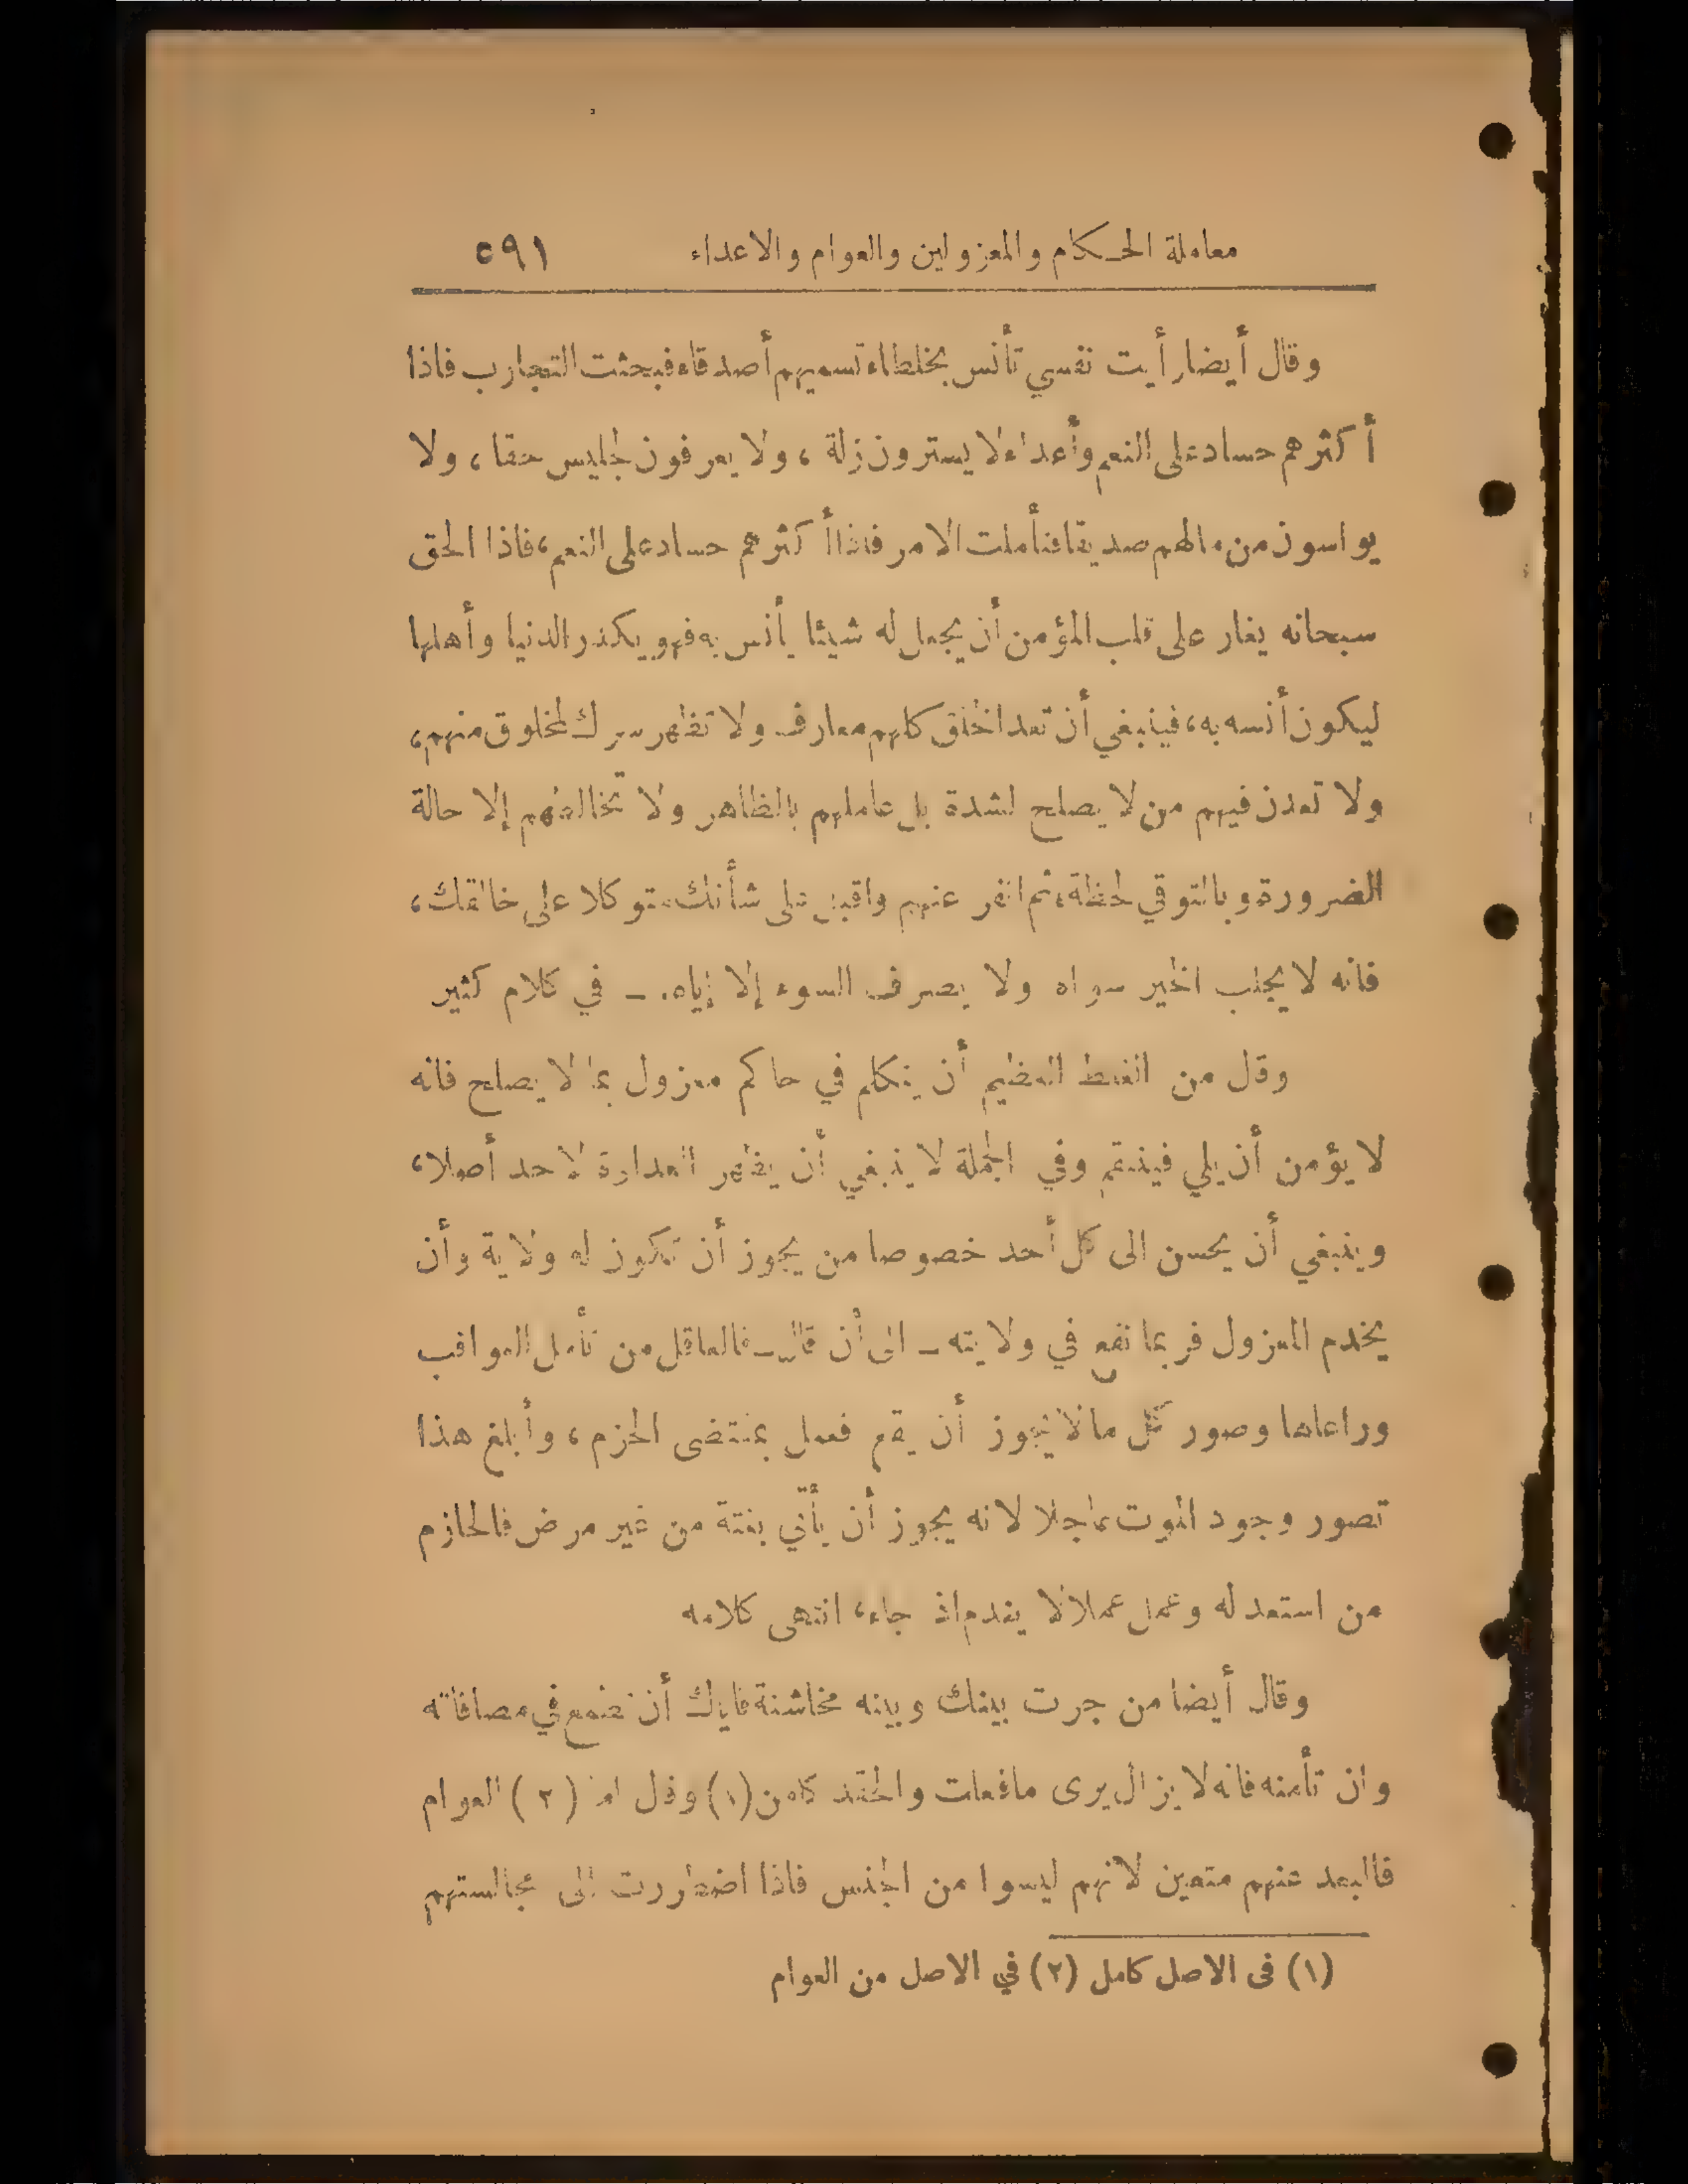 معاملة الحكام والمعزولين والعوام والاعداء ٥٩١
وقال أيضا رأيت نفسي تأنس بخلطاء تسميهم أصدقاء فبحثت التجارب فاذا
أكثرهم حساد على النعم وأعداء لا يسترون زلة ، ولا يعرفون لجليس حقا ، ولا
يواسون من مالهم صديقا فتأملت الامر فاذا أكثرهم حساد على النعم ، فاذا الحق
سبحانه يغار على قلب المؤمن أن يجعل له شيئا يأنس به فهو يكدر الدنيا وأهلها
ليكون أنسه به ، فينبغي أن تعد الخلق كلهم معارف ولا تظهر سرك لمخلوق منهم ،
ولا تعدن فيهم من لا يصلح لشدة بل عاملهم بالظاهر ولا تخالطهم إلا حالة
الضرورة وبالتوقي لحظة ، ثم انفر عنهم واقبل على شأنك متوكلا على خالقك ،
فانه لا يجلب الخير سواه ولا يصرف السوء إلا إياه . ـ في كلام كثير
وقال من الغلط العظيم أن يتكلم في حاكم معزول بما لا يصلح فانه
لا يؤمن أن يلي فينتقم وفي الجملة لا ينبغي أن يظهر العداوة لاحد أصلا ،
وينبغي أن يحسن الى كل أحد خصوصا من يجوز أن تكون له ولاية وأن
يخدم المعزول فربما نفع في ولايته ـ الى أن قال ـ فالعاقل من تأمل العواقب
وراعاها وصور كل ما لا يجوز أن يقع فعمل بمقتضى الحزم ، وأبلغ هذا
تصور وجود الموت عاجلا لانه يجوز أن يأتي بغتة من غير مرض فالحازم
من استعد له وعمل عملا لا يندم اذ جاء ، انتهى كلامه
وقال أيضا من جرت بينك وبينه مخاشنة فاياك أن تطمع في مصافاته
وان تأمنه فانه لا يزال يرى ما فعلت والحقد كامن (١) وقال اما (٢) العوام
فالبعد عنهم متعين لانهم ليسوا من الجنس فاذا اضطررت الى مجالستهم
(١) فى الاصل كامل (٢) في الاصل من العوام